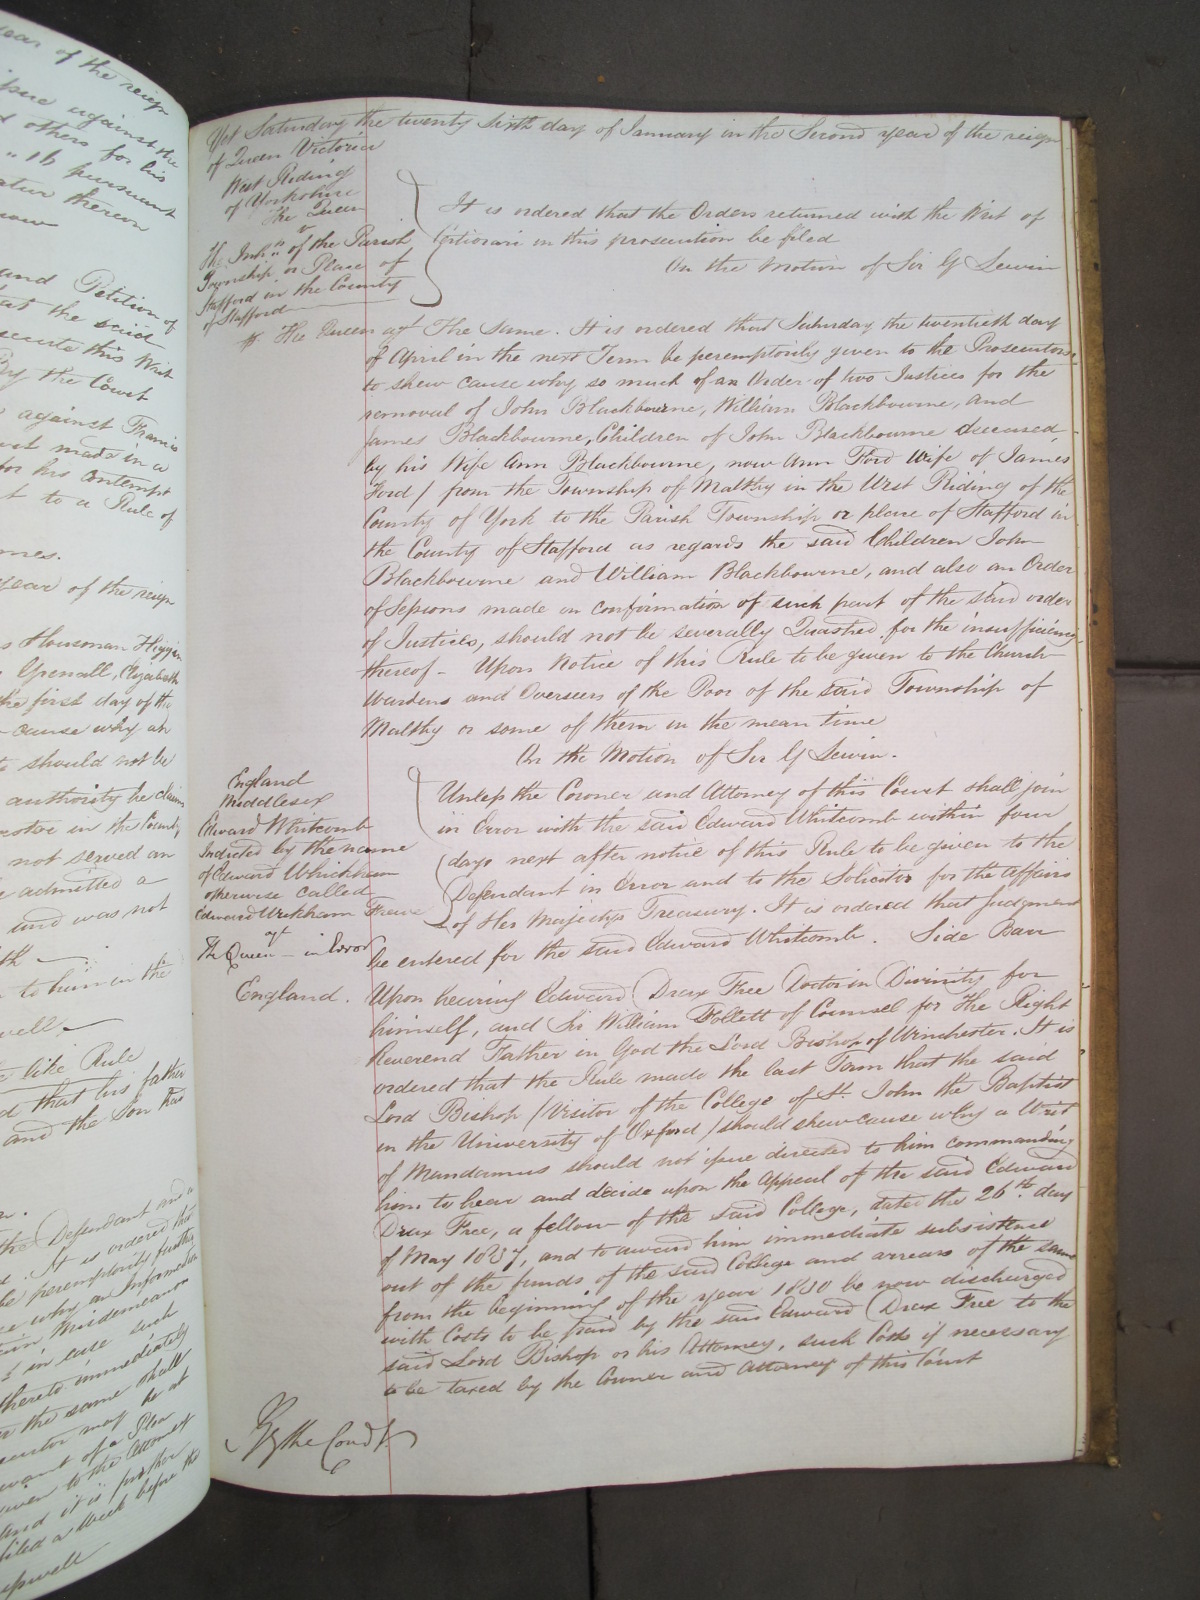 Yet Saturday the twenty sixth day of January in the Second year of the reign
of Queen Victoria
West Riding
of Yorkshire
The Queen
v
The Inhts of the Parish
Township or Place of
Stafford in the County
of Stafford
It is ordered that the Orders returned with the Writ of
Certiorari in this prosecution be filed
On the Motion of Sir G Lewin
The Queen agt The Same. It is ordered that Saturday the twentieth day
of April in the next Term be peremptorily given to the Prosecutors
to shew cause why so much of an Order of two Justices for the
removal of John Blackbourne, William Blackbourne, and
James Blackbourne, Children of John Blackbourne deceased,
by his Wife Ann Blackbourne, now Ann Ford Wife of James
Ford / from the Township of Maltby in the West Riding of the
County of York to the Parish Township or place of Stafford in
the County of Stafford as regards the said Children John
Blackbourne and William Blackbourne, and also an Order
of Sessions made in confirmation of such part of the said order
of Justices, should not be severally Quashed for the insufficiency
thereof - Upon Notice of this Rule to be given to the Church
Wardens and Overseers of the Poor of the said Township of
Maltby or some of them in the mean time
On the Motion of Sir G Lewin.
England
Middlesex
Edward Whitcomb
Indicted by the name
of Edward Whickham
otherwise called
Edward Wickham Freeve
agt
The Queen - in Error
Unless the Coroner and Attorney of this Court shall join
in Error with the said Edward Whitcomb within four
days next after notice of this Rule to be given to the
Defendant in Error and to the Solicitor for the affairs
of Her Majestys Treasury. It is ordered that Judgment
be entered for the said Edward Whitcomb. Side Bar
England. Upon hearing Edward Drax Free Doctor in Divinity for
himself, and Sir William Follett of Counsel for The Right
Reverend Father in God the Lord Bishop of Winchester. It is
ordered that the Rule made the last Term that the said
Lord Bishop (Visitor of the College of St. John the Baptist
in the University of Oxford) should shew cause why a Writ
of Mandamus should not issue directed to him commanding
him to hear and decide upon the Appeal of the said Edward
Drax Free, a fellow of the said College, dated the 26th day
of May 1837, and to award him immediate subsistence
out of the funds of the said College and arrears of the same
from the beginning of the year 1830 be now discharged
with Costs to be paid by the said Edward Drax Free to the
said Lord Bishop or his Attorney, such Costs if necessary
to be taxed by the Coroner and Attorney of this Court
By the Court.
year of the reign
issue against the
d others for his
pursuant
thereon
now
and Petition of
that the said
this Writ
By the Court
against Francis
made in a
for his contempt
to a Rule of
year of the reign
Housman Higgin
Elizabeth
the first day of the
cause why an
should not be
authority he claims
in the County
not served an
be admitted a
and was not
to him in the
like Rule
d that his father
and the Son has
the Defendant and a
It is ordered that
be peremptorily further
why an Information
Misdemeanor
in case such
thereto immediately
the same shall
may be at
want of a Plea
to the Attorney
and it is further
filed a Week before the